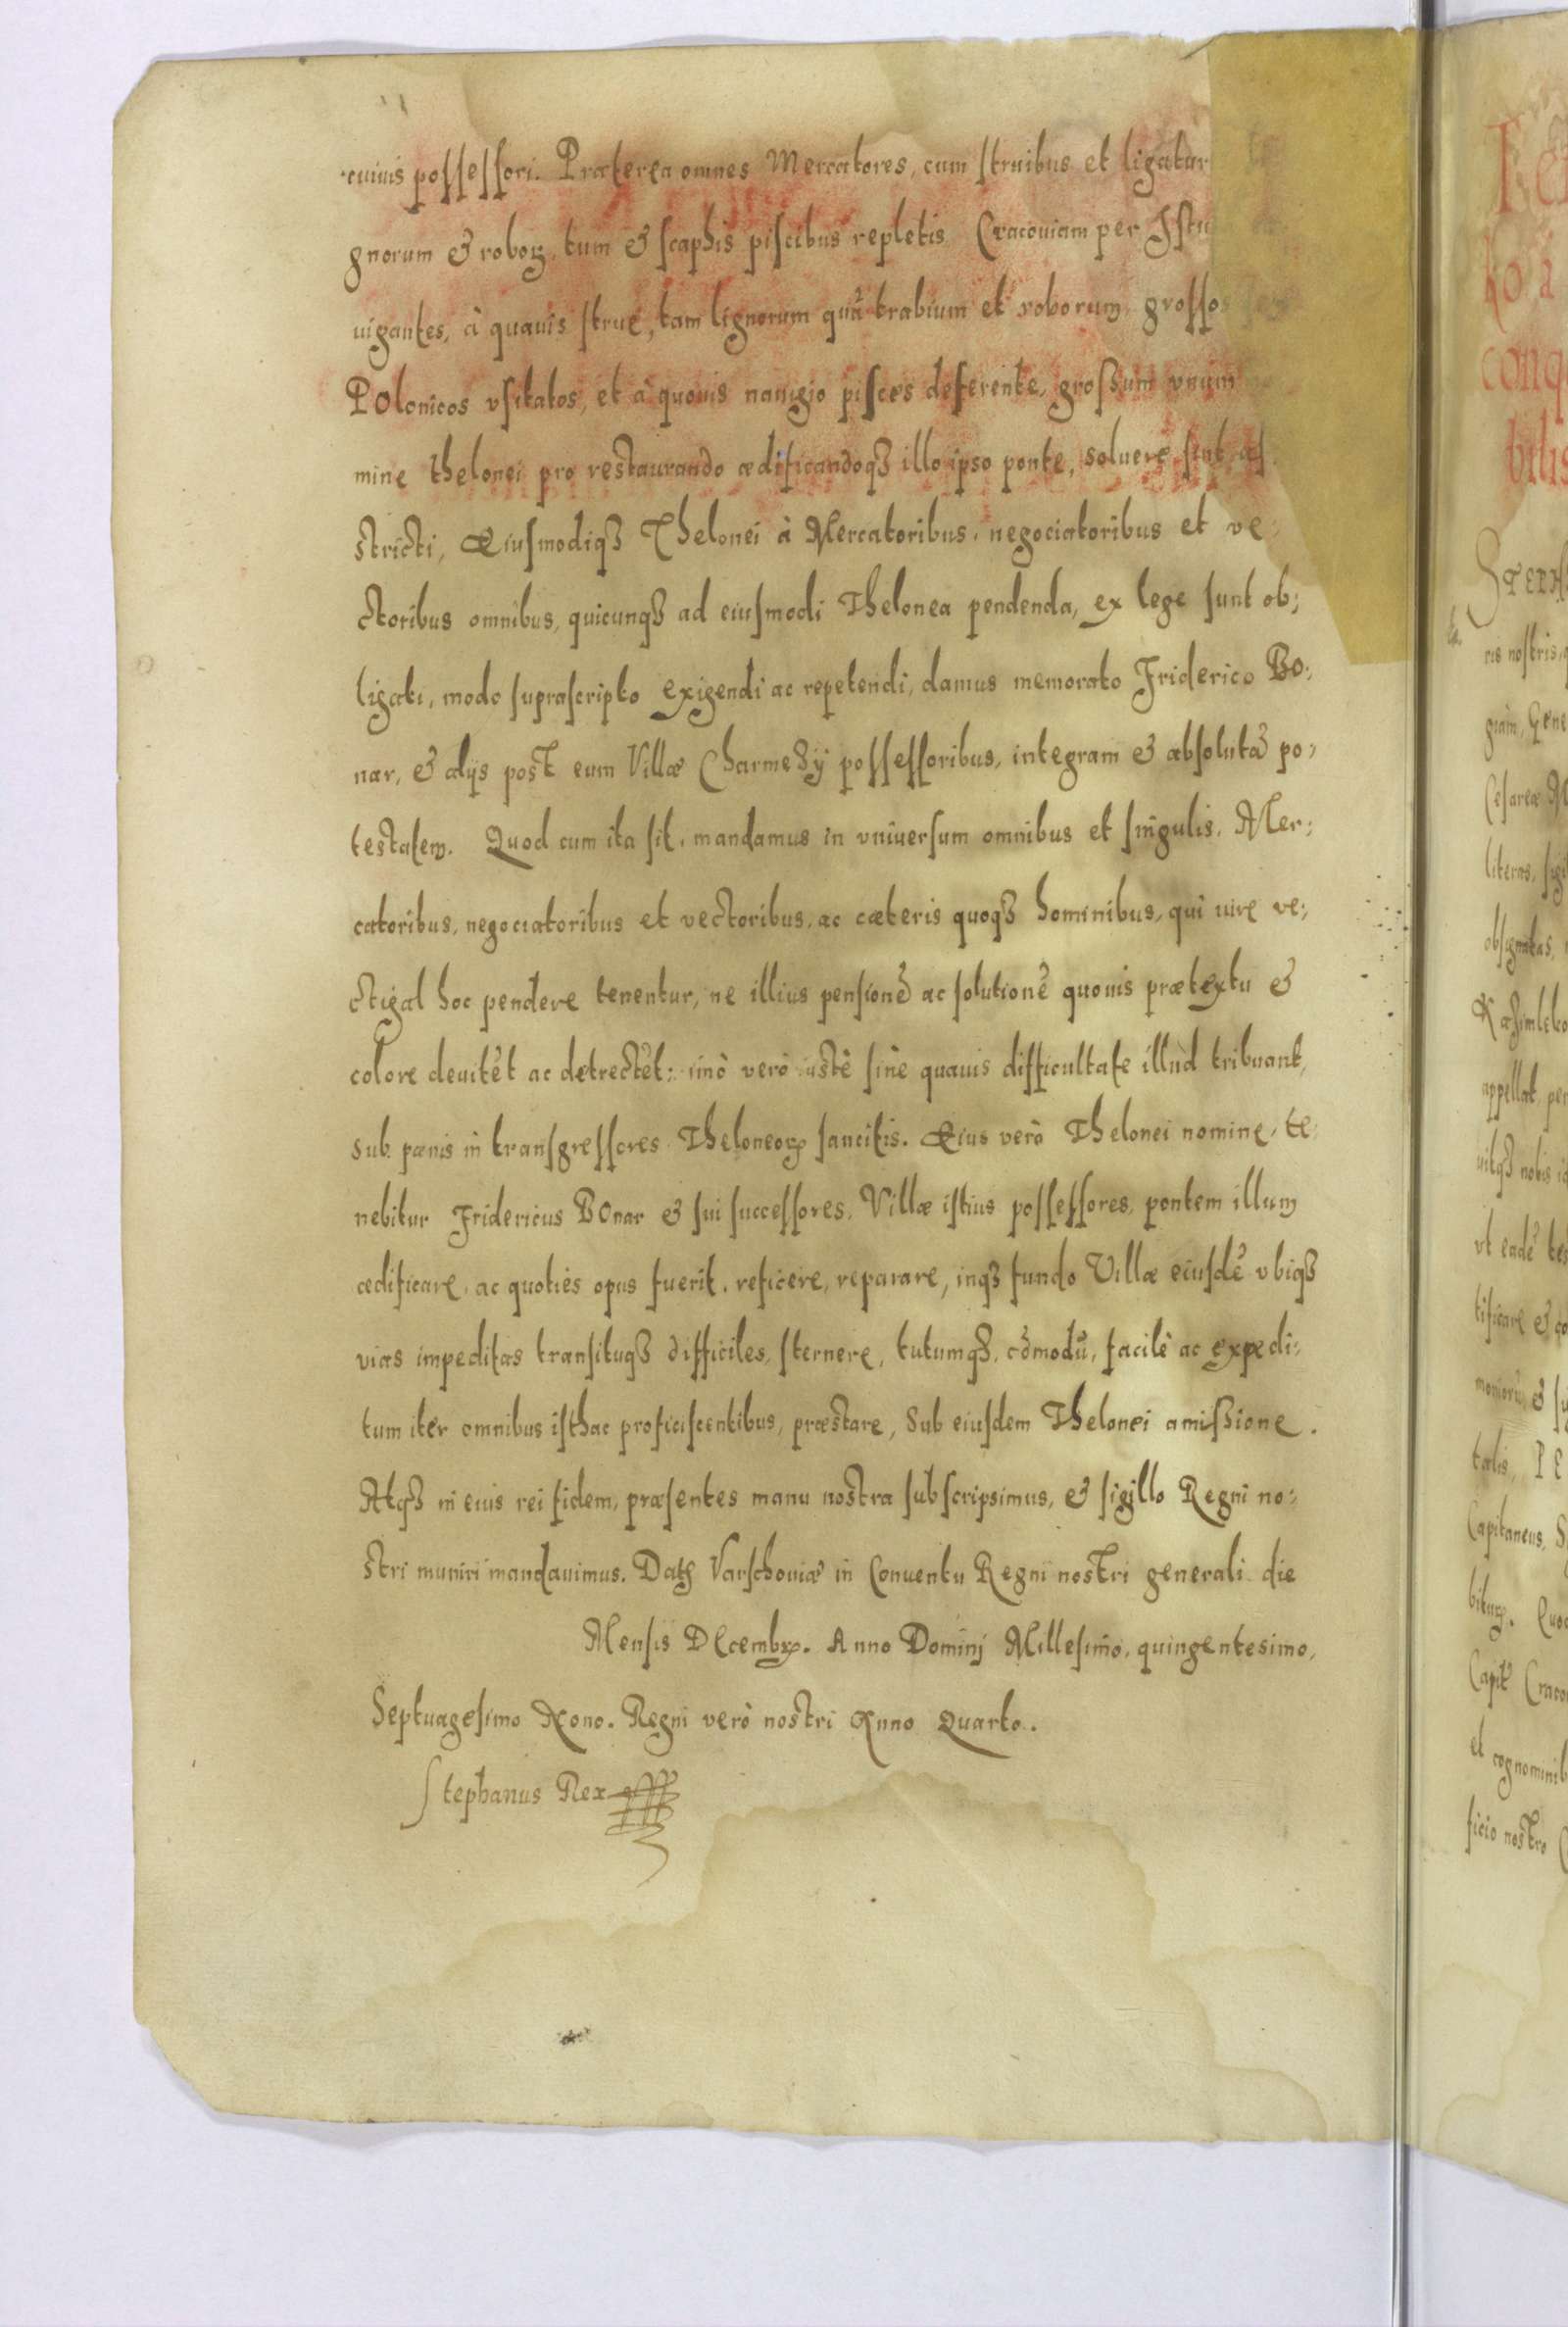 cuiuis possessori. Præterea omnes Mercatores, cum struibus et ligatur
gnorum & roboꝝ, tum & scaphis piscibus repletis Cracouiam per Istu
uigantes, à quauis strue, tam lignorum quā trabium et roborum, grosso
Polonicos vsitatos, et à quouis nauigio pisces deferente, grossum vnum
mine thelonei pro restaurando ædificandoqȝ illo ipso ponte, soluere sint as
stricti, Eiusmodiqȝ Thelonei à Mercatoribus, negociatoribus et ve:
ctoribus omnibus, quicunqȝ ad eiusmodi Thelonea pendenda, ex lege sunt ob:
ligati, modo suprascripto exigendi ac repetendi, damus memorato Friderico Bo:
nar, & alijs post eum Villæ Charmeży possessoribus, integram & absolutā po:
testatem. Quod cum ita sit, mandamus in vniuersum omnibus et singulis, Mer:
catoribus, negociatoribus et vectoribus, ac cæteris quoqȝ hominibus, qui iure ve:
ctigal hoc pendere tenentur, ne illius pensionē ac solutionē quouis prætextu &
colore deuitēt ac detrectēt: imò verò iustè sine quauis difficultate illud tribuant,
sub pœnis in transgressores Theloneoꝝ sancitis. Eius verò Thelonei nomine, te:
nebitur Fridericus Bonar & sui successores, Villæ istius possessores, pontem illum
ædificare, ac quoties opus fuerit, reficere, reparare, inqȝ fundo Villæ eiusdē vbiqȝ
vias impeditas transitusqȝ difficiles, sternere, tutumqȝ, cōmodū, facilè ac expedi:
tum iter omnibus isthac proficiscentibus, præstare, sub eiusdem Thelonei amissione.
Atqȝ in eius rei fidem, præsentes manu nostra subscripsimus, & sigillo Regni no:
stri muniri mandauimus. Datꝫ Varschouiæ in Conuentu Regni nostri generali die
Mensis Decembꝝ. Anno Dominj Millesimo, quingentesimo,
Septuagesimo Nono. Regni verò nostri Anno Quarto.
Stephanus Rex